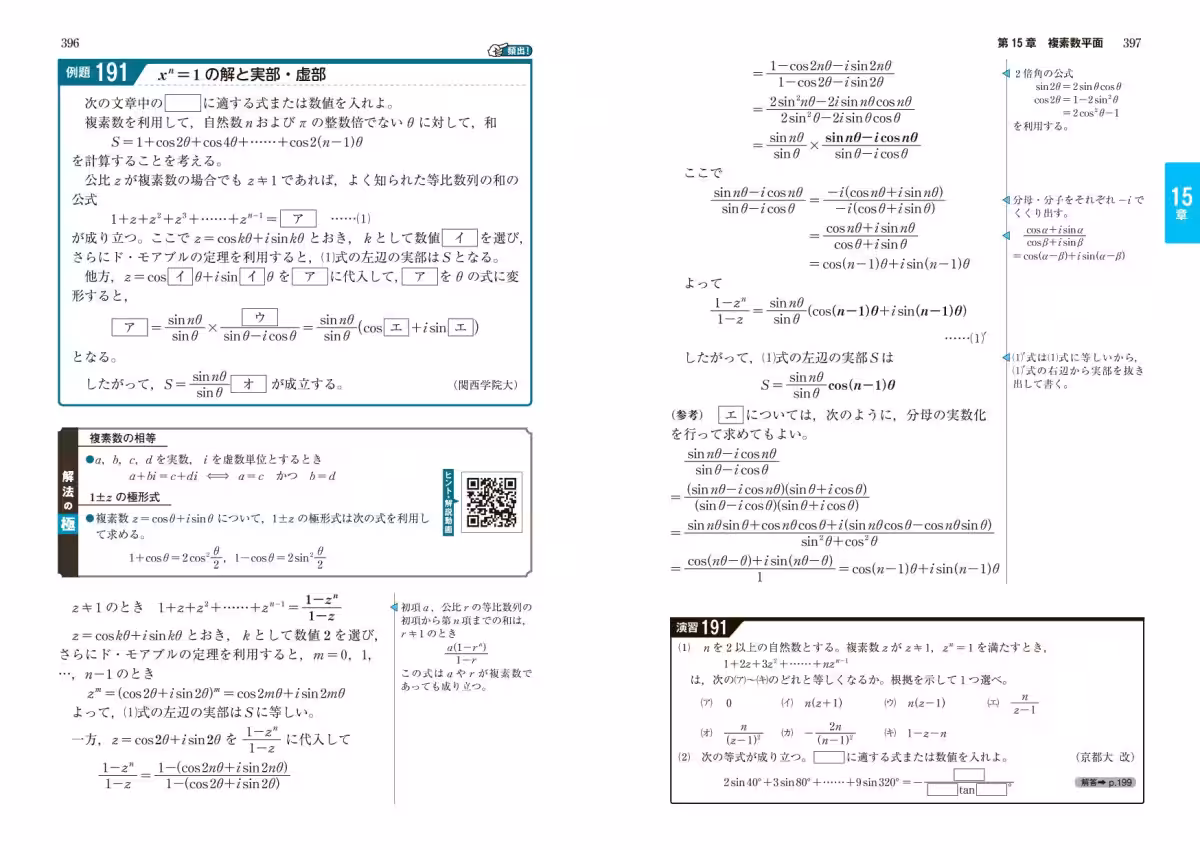 396
頻出!
例題 191 xⁿ=1 の解と実部・虚部
次の文章中の□に適する式または数値を入れよ。
複素数を利用して，自然数 n および π の整数倍でない θ に対して，和
S=1+cos2θ+cos4θ+……+cos2(n−1)θ
を計算することを考える。
公比 z が複素数の場合でも z≠1 であれば，よく知られた等比数列の和の
公式
1+z+z²+z³+……+zⁿ⁻¹= ア ……(1)
が成り立つ。ここで z=coskθ+isinkθ とおき，k として数値 イ を選び，
さらにド・モアブルの定理を利用すると，(1)式の左辺の実部は S となる。
他方，z=cos イ θ+isin イ θ を ア に代入して，ア を θ の式に変
形すると，
ア = sin nθ/sin θ × ウ/(sin θ−i cos θ) = sin nθ/sin θ (cos エ +i sin エ)
となる。
したがって，S= sin nθ/sin θ オ が成立する。 （関西学院大）
解法の極
複素数の相等
●a，b，c，d を実数，i を虚数単位とするとき
a+bi=c+di ⟺ a=c かつ b=d
1±z の極形式
●複素数 z=cosθ+isinθ について，1±z の極形式は次の式を利用し
て求める。
1+cosθ=2cos² θ/2，1−cosθ=2sin² θ/2
ヒント・解説動画
z≠1 のとき 1+z+z²+……+zⁿ⁻¹= (1−zⁿ)/(1−z)
z=coskθ+isinkθ とおき，k として数値 2 を選び，
さらにド・モアブルの定理を利用すると，m=0，1，
…，n−1 のとき
zᵐ=(cos2θ+isin2θ)ᵐ=cos2mθ+isin2mθ
よって，(1)式の左辺の実部は S に等しい。
一方，z=cos2θ+isin2θ を (1−zⁿ)/(1−z) に代入して
(1−zⁿ)/(1−z) = (1−(cos2nθ+isin2nθ))/(1−(cos2θ+isin2θ))
初項 a，公比 r の等比数列の
初項から第 n 項までの和は，
r≠1 のとき
a(1−rⁿ)/(1−r)
この式は a や r が複素数で
あっても成り立つ。
第15章 複素数平面 397
= (1−cos2nθ−isin2nθ)/(1−cos2θ−isin2θ)
= (2sin²nθ−2i sin nθ cos nθ)/(2sin²θ−2i sin θ cos θ)
= sin nθ/sin θ × (sin nθ−i cos nθ)/(sin θ−i cos θ)
ここで
(sin nθ−i cos nθ)/(sin θ−i cos θ) = −i(cos nθ+i sin nθ)/−i(cos θ+i sin θ)
= (cos nθ+i sin nθ)/(cos θ+i sin θ)
=cos(n−1)θ+i sin(n−1)θ
よって
(1−zⁿ)/(1−z) = sin nθ/sin θ (cos(n−1)θ+i sin(n−1)θ)
……(1)′
したがって，(1)式の左辺の実部 S は
S= sin nθ/sin θ cos(n−1)θ
2倍角の公式
sin2θ=2sinθcosθ
cos2θ=1−2sin²θ
=2cos²θ−1
を利用する。
分母・分子をそれぞれ −i で
くくり出す。
(cosα+isinα)/(cosβ+isinβ)
=cos(α−β)+isin(α−β)
(1)′式は(1)式に等しいから，
(1)′式の右辺から実部を抜き
出して書く。
15章
（参考） エ については，次のように，分母の実数化
を行って求めてもよい。
(sin nθ−i cos nθ)/(sin θ−i cos θ)
= (sin nθ−i cos nθ)(sin θ+i cos θ)/(sin θ−i cos θ)(sin θ+i cos θ)
= (sin nθ sin θ+cos nθ cos θ+i(sin nθ cos θ−cos nθ sin θ))/(sin²θ+cos²θ)
= (cos(nθ−θ)+i sin(nθ−θ))/1 =cos(n−1)θ+i sin(n−1)θ
演習 191
(1) n を 2 以上の自然数とする。複素数 z が z≠1，zⁿ=1 を満たすとき，
1+2z+3z²+……+nzⁿ⁻¹
は，次の(ア)〜(キ)のどれと等しくなるか。根拠を示して1つ選べ。
(ア) 0 (イ) n(z+1) (ウ) n(z−1) (エ) n/(z−1)
(オ) n/(z−1)² (カ) −2n/(n−1)² (キ) 1−z−n
(2) 次の等式が成り立つ。□に適する式または数値を入れよ。 （京都大 改）
2sin40°+3sin80°+……+9sin320°=− □/(□tan□°)
解答➡ p.199